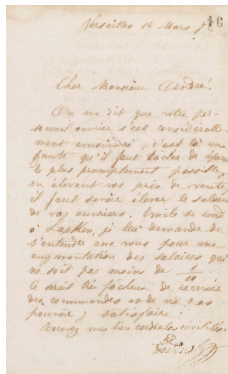 Versailles 16 Mars
16
Cher Monsieur André
On me dit que votre per-
sonnel ouvrier s'est considérable-
ment amoindri, c'est là une
faute qu'il faut tâcher de
le plus promptement possible,
en élevant vos prix de vente
il faut savoir élever le salaire
de vos ouvriers.
à Laeken, je lui demande de
s'entendre avec vous pour une
augmentation des salaires qui
ne soit pas moins de 1/10
ce serait très fâcheux de recevoir
des commandes et de ne pas
pouvoir y satisfaire.
Recevez mes très cordiales civilités.